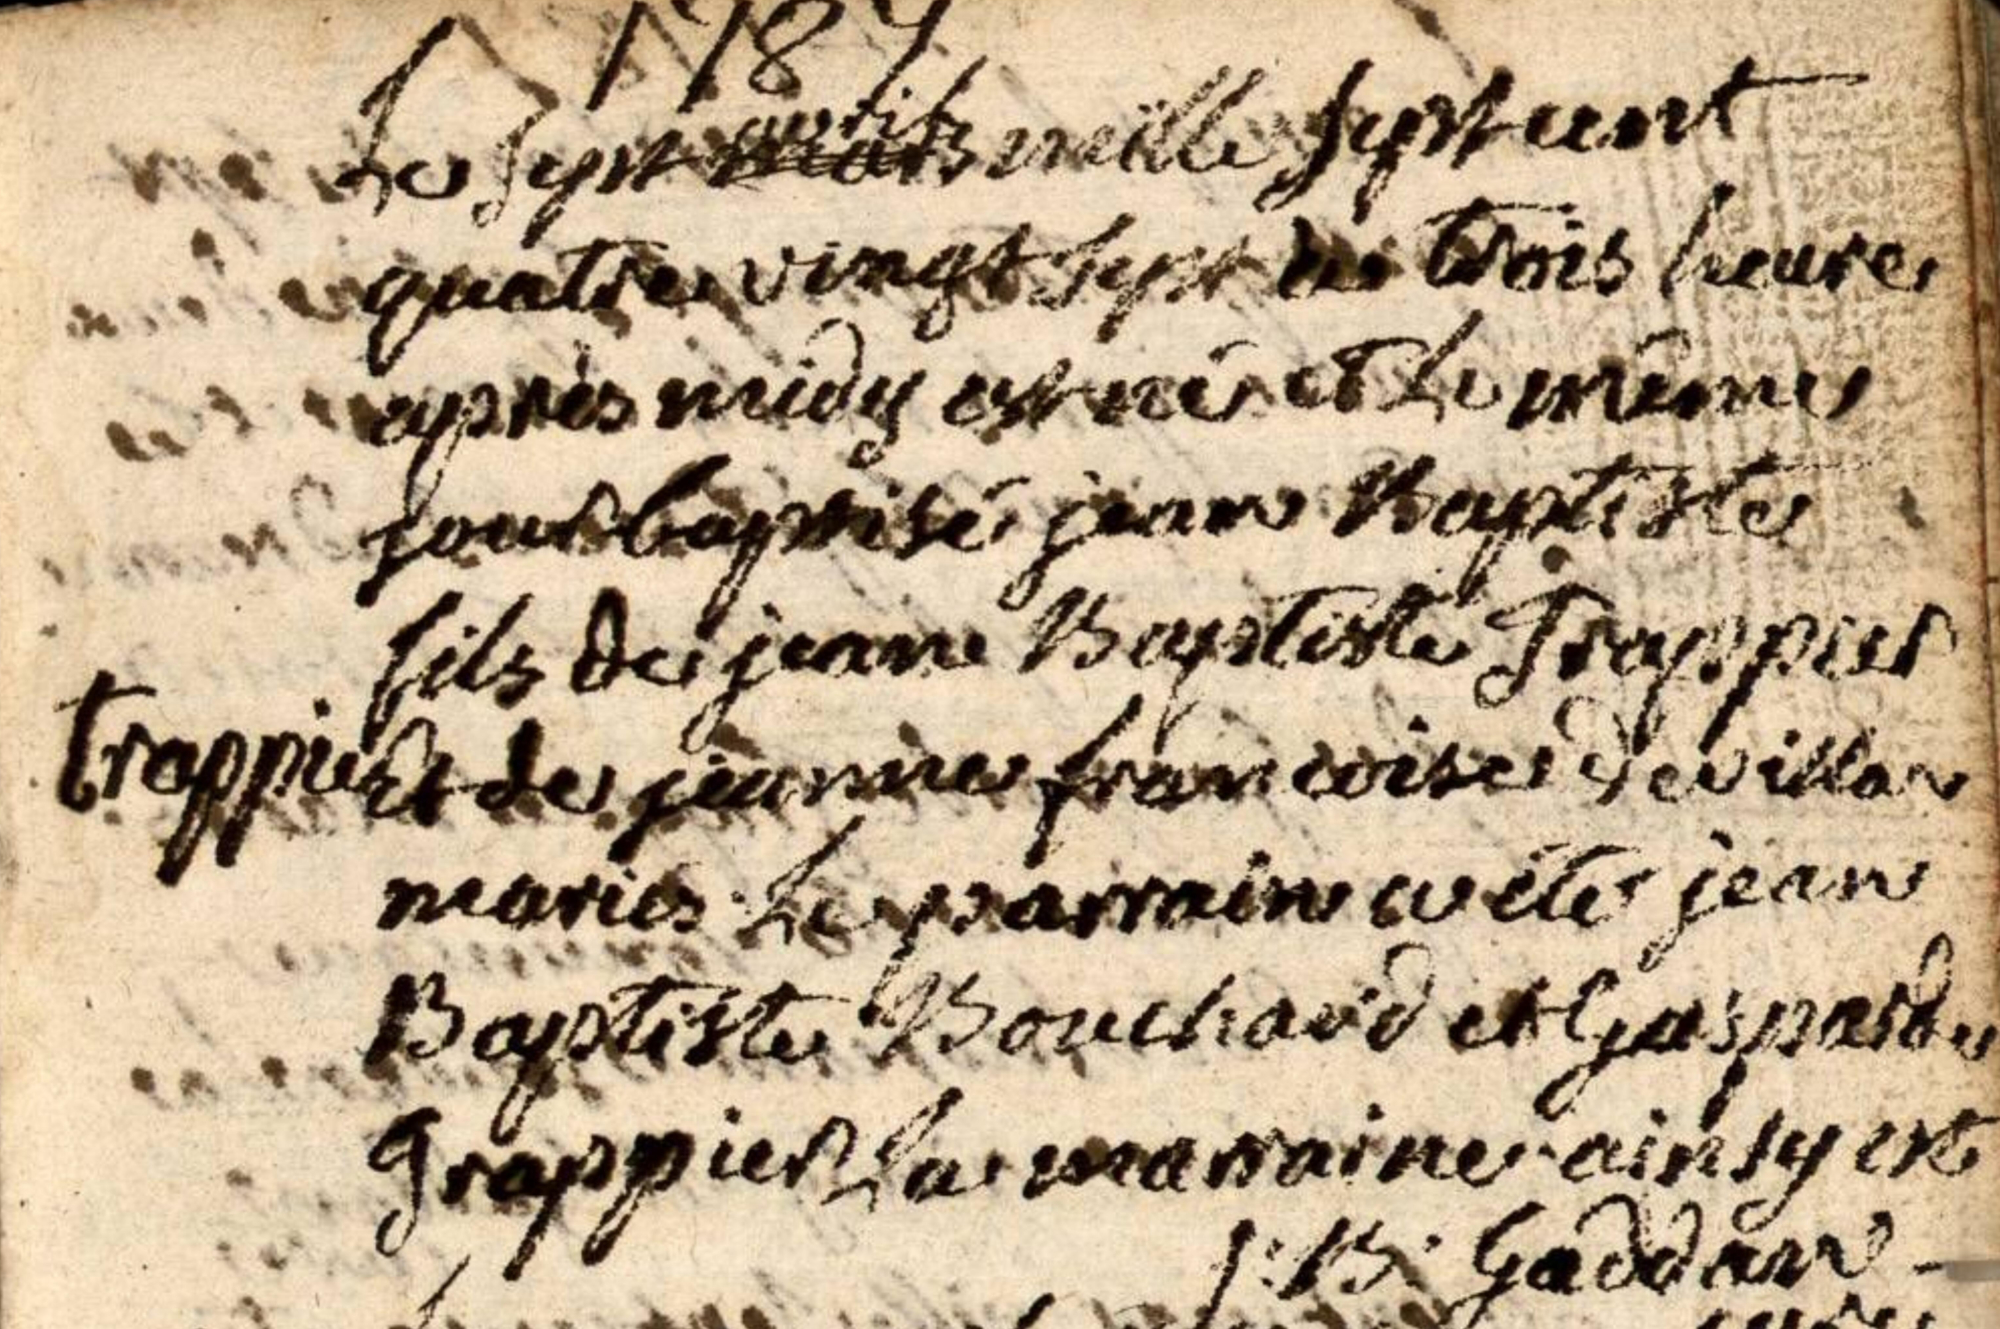 1787
avril
Le sept mars mille sept cent
quatre vingt sept des trois heures
après midy est né et le même
jour baptisé jean Baptiste
fils de jean Baptiste Trappier
trappier
et de jeanne francoise Devillar
mariés Le parrain a été jean
Baptiste Bouchard et Gasparde
Trappier La marraine ainsy est
J: B: Gaddan
curé